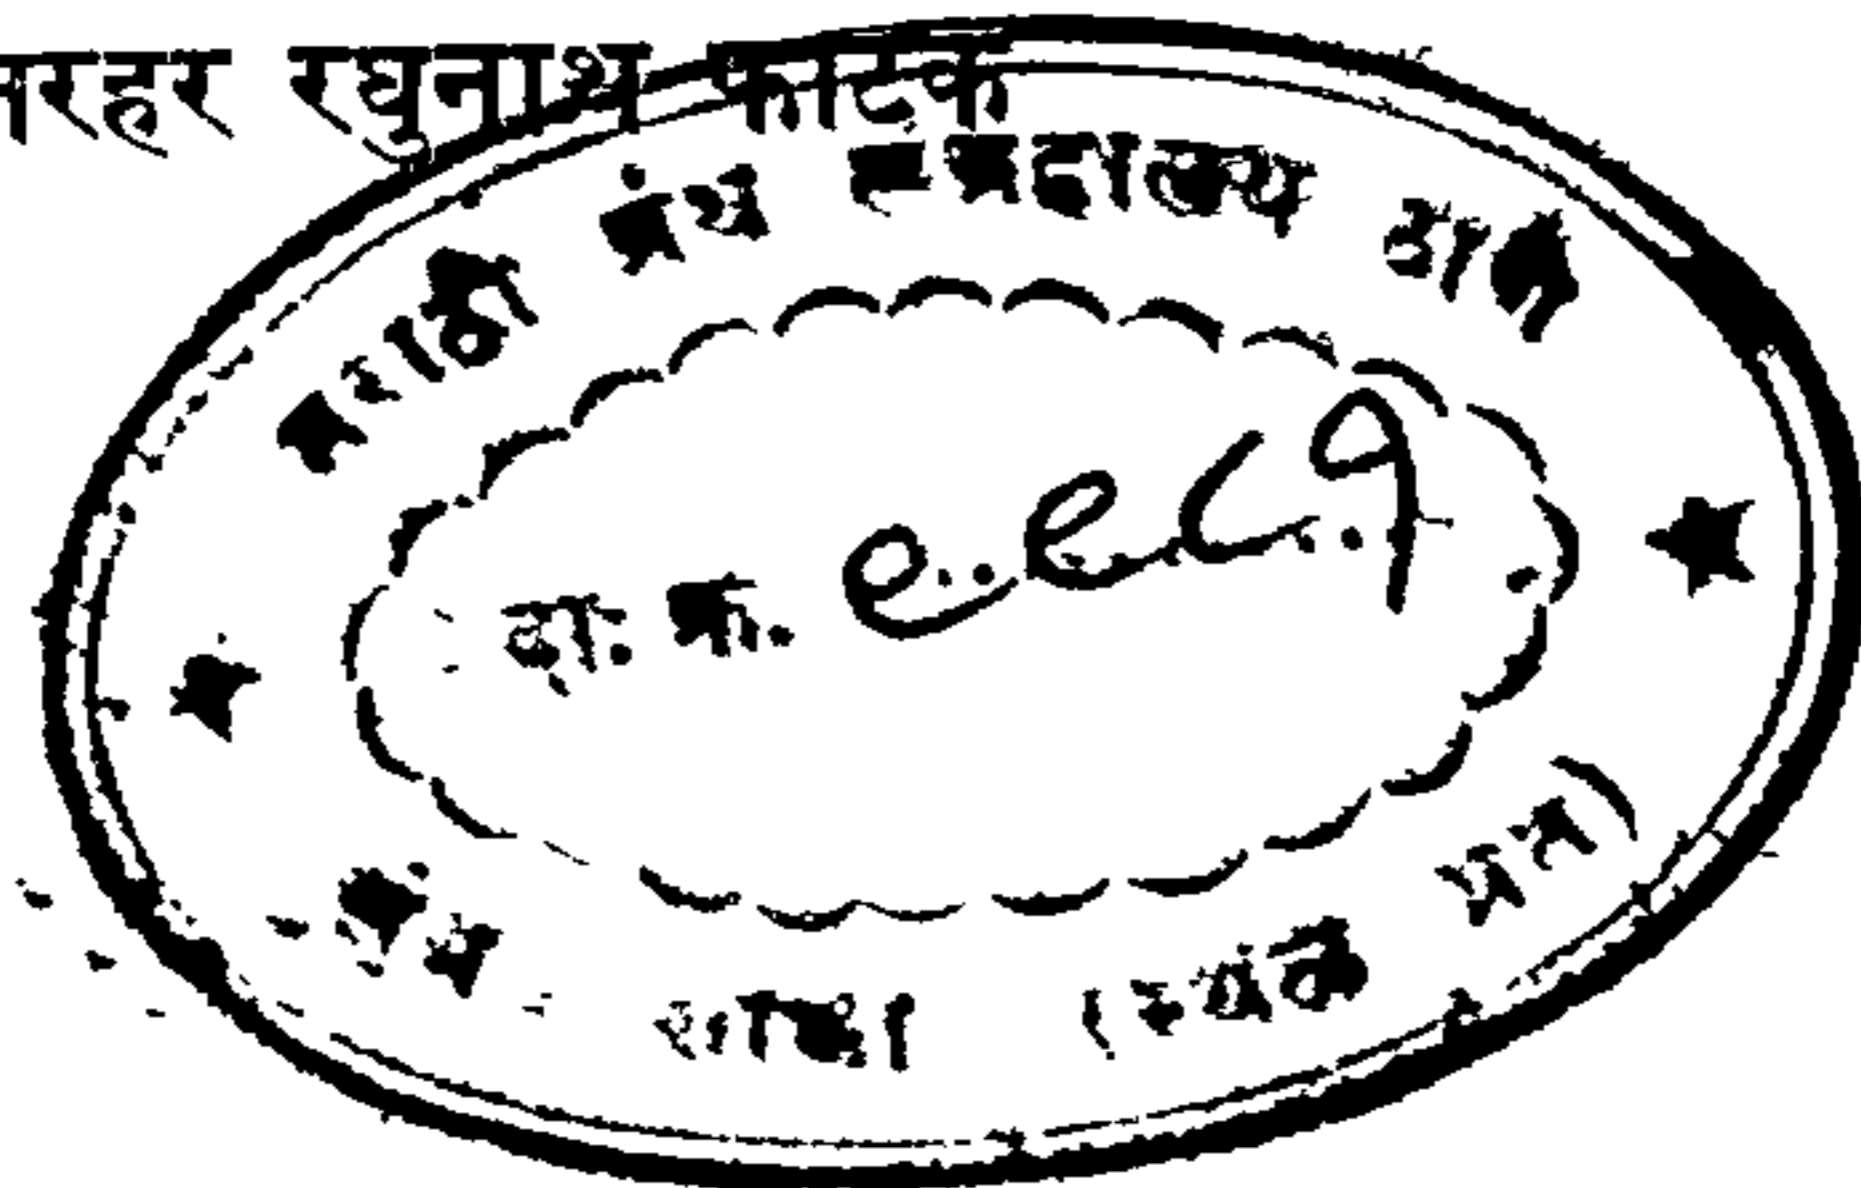 नरहर रघुनाथ फाटक
मराठी ग्रंथ संग्रहालय ठाणे
दा. क्र. ९९८१
शाखा (स्थळ प्रत)